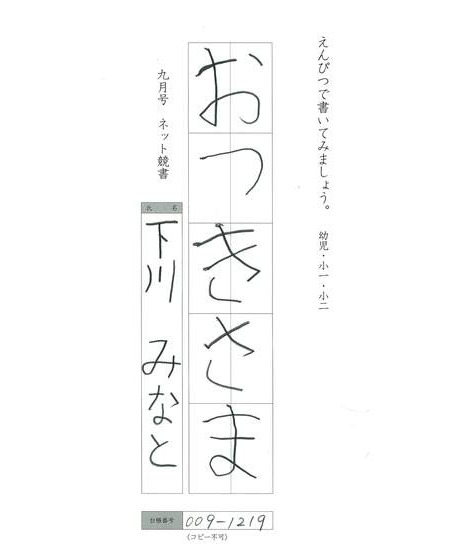 えんぴつで書いてみましょう。 幼児・小一・小二
おつきさま
九月号 ネット競書
氏名
下川 みなと
台帳番号 009-1219
(コピー不可)